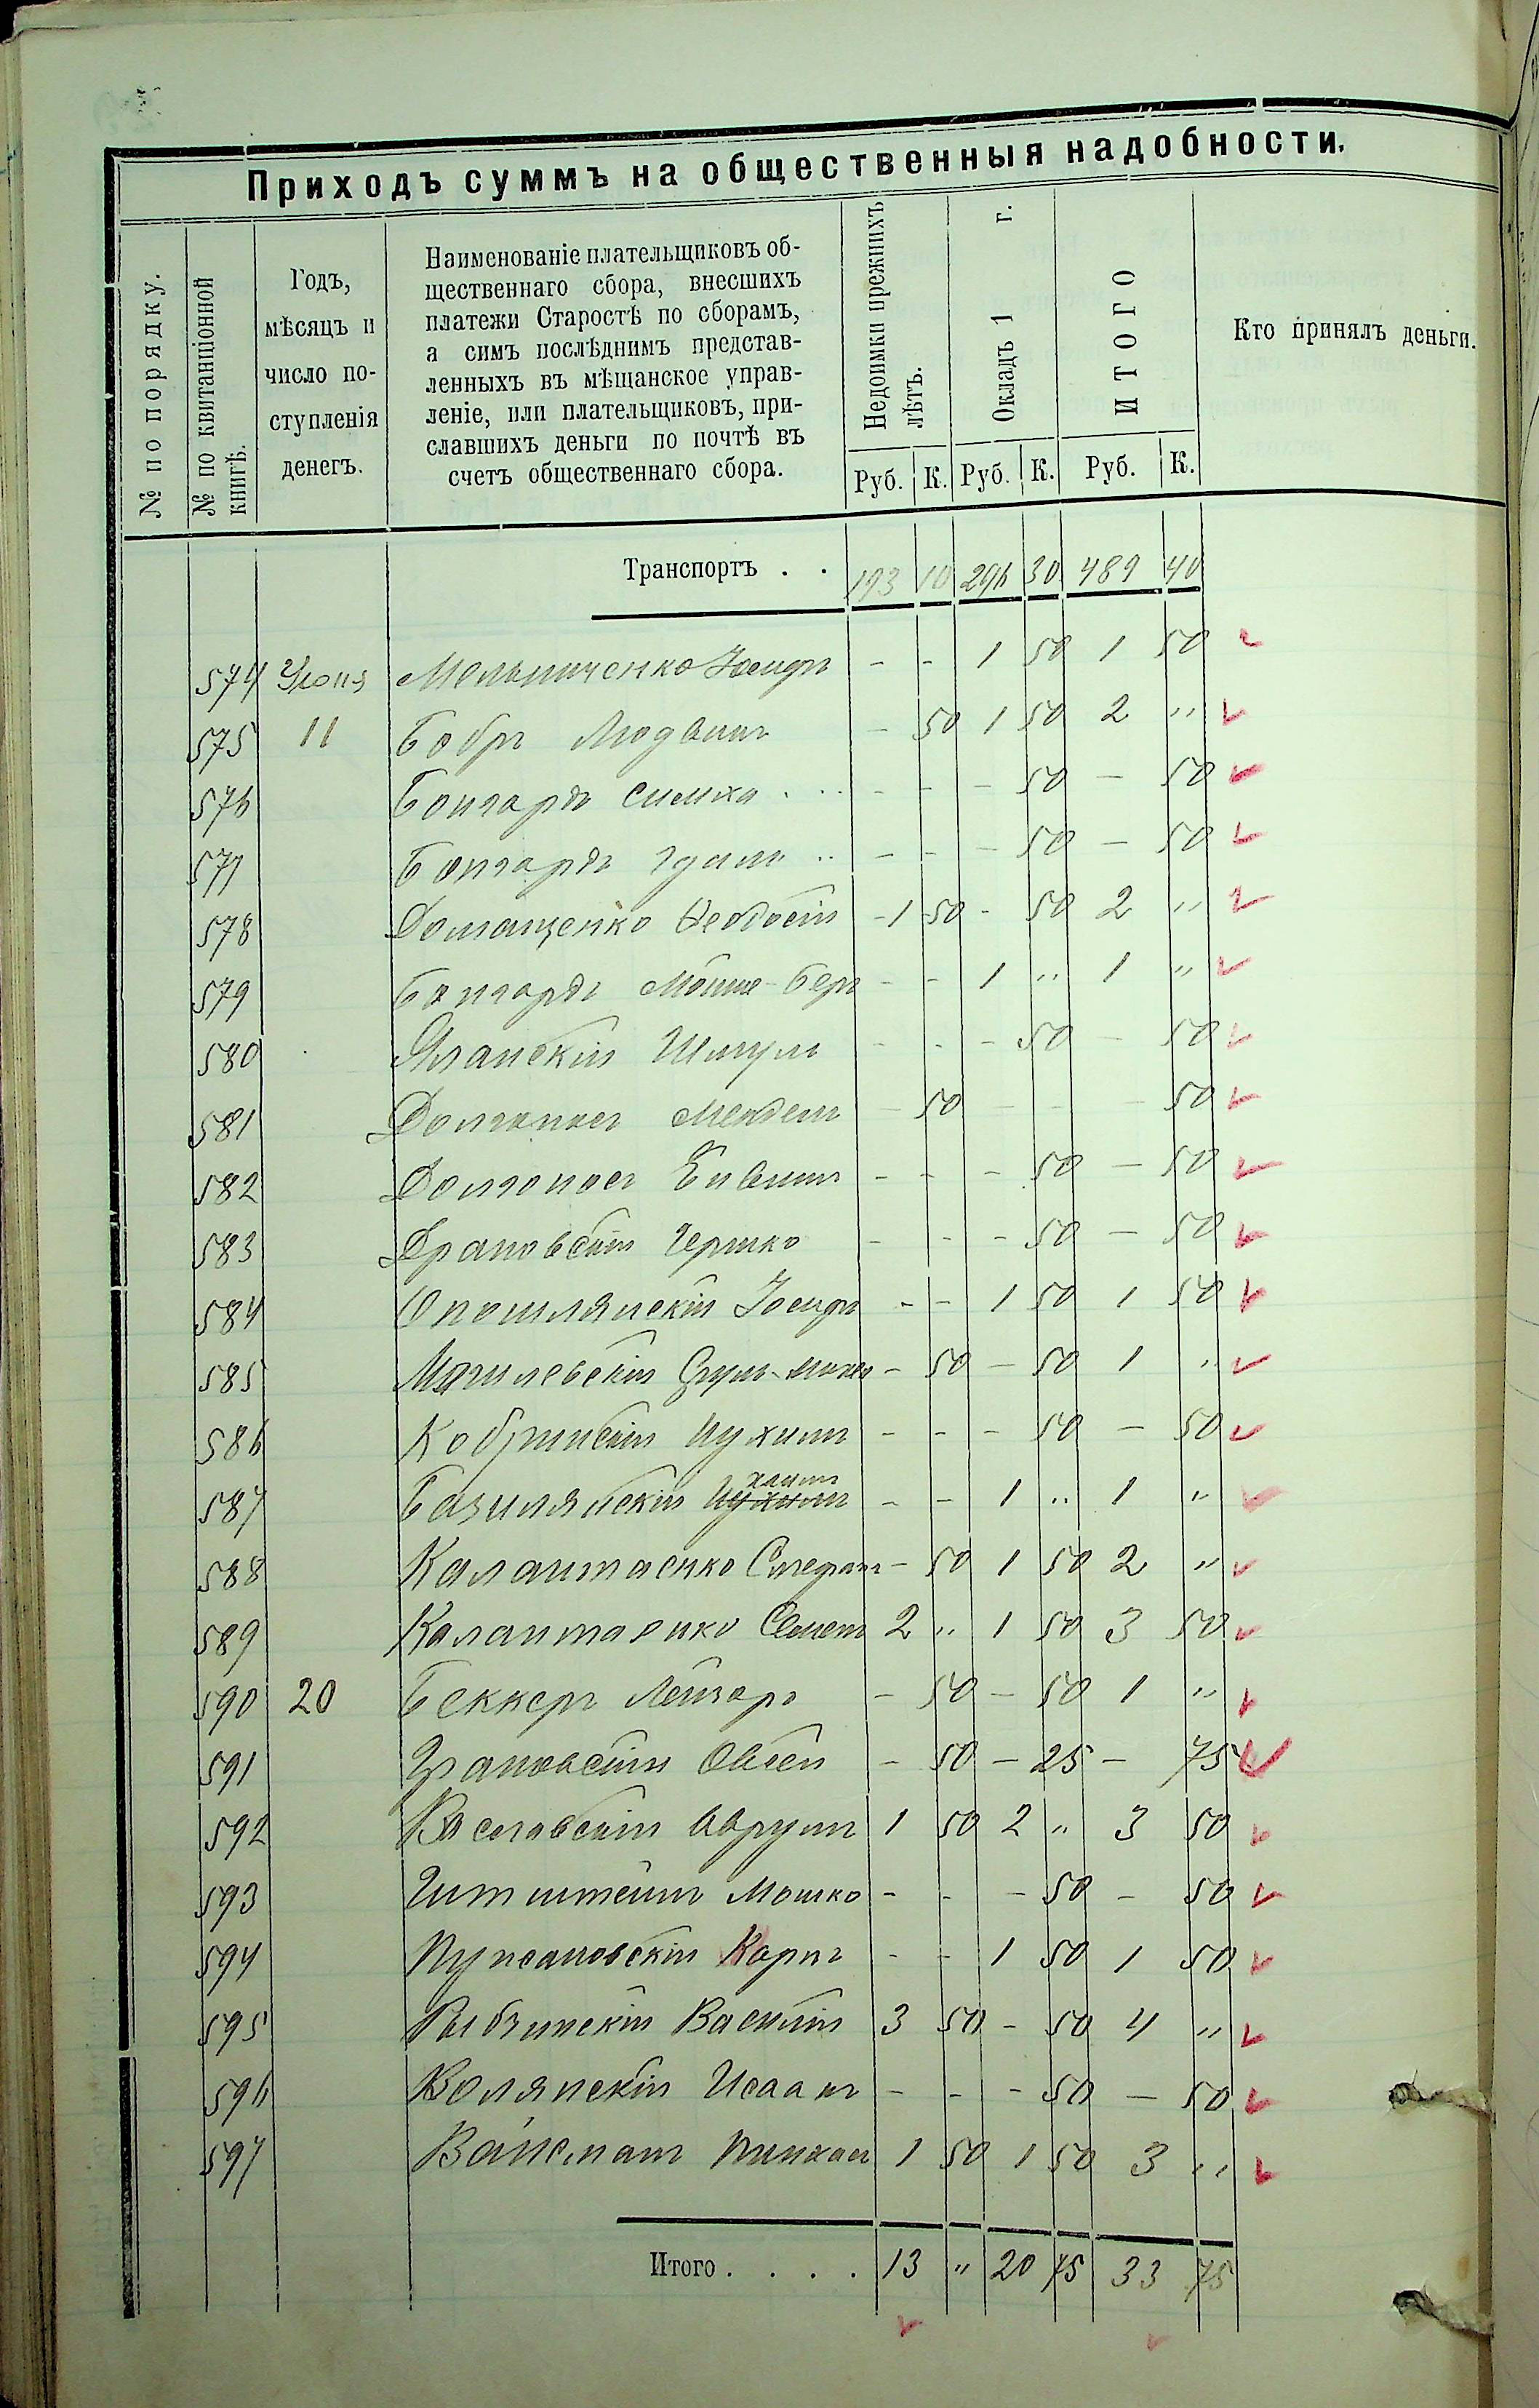 Приходъ суммъ на общественныя надобности.
№ по порядку.
№ по квитанціонной книгѣ.
Годъ, мѣсяцъ и число поступленія денегъ.
Наименованіе плательщиковъ об-
щественнаго сбора, внесшихъ
платежи Старостѣ по сборамъ,
а симъ послѣднимъ представ-
ленныхъ въ мѣщанское управ-
леніе, или плательщиковъ, при-
славшихъ деньги по почтѣ въ
счетъ общественнаго сбора.
Недоимки прежнихъ лѣтъ.
Окладъ 1 г.
ИТОГО
Кто принялъ деньги.
Руб. К. Руб. К. Руб. К.
Транспортъ . . 193 10 296 30 489 40
574 Іюня Мельниченко Іосифъ - - 1 50 1 50
575 11 Бобръ Людвигъ - 50 1 50 2 "
576 Бонгардъ Симха - - - 50 - 50
577 Бонгардъ - - - 50 - 50
578 Домащенко Феодосій - 1 50 - 50 2 "
579 Бонгардъ Мойше-Беръ - - 1 " 1 "
580 Яланскій Шмуль - - - 50 - 50
581 Долгоносъ Мендель - 50 - - - 50
582 Долгоносъ - - - 50 - 50
583 Драновскій Гершко - - - 50 - 50
584 Опошлянскій Іосифъ - - 1 50 1 50
585 Могилевскій - 50 - 50 1 "
586 Кобринскій Нухимъ - - - 50 - 50
587 Базилянскій Нухимъ Хаимъ - - 1 " 1 "
588 Калантаенко Стефанъ - 50 1 50 2 "
589 Калантаенко Семенъ 2 " 1 50 3 50
590 20 Беккеръ Лейзоръ - 50 - 50 1 "
591 Овсей - 50 - 25 - 75
592 Ваславскій Аврумъ 1 50 2 " 3 50
593 Мошко - - - 50 - 50
594 Карпъ - - 1 50 1 50
595 Рыбчинскій Василій 3 50 - 50 4 "
596 Волянскій Исаакъ - - - 50 - 50
597 Вайсманъ Пинхасъ 1 50 1 50 3 "
Итого . . . . 13 " 20 75 33 75